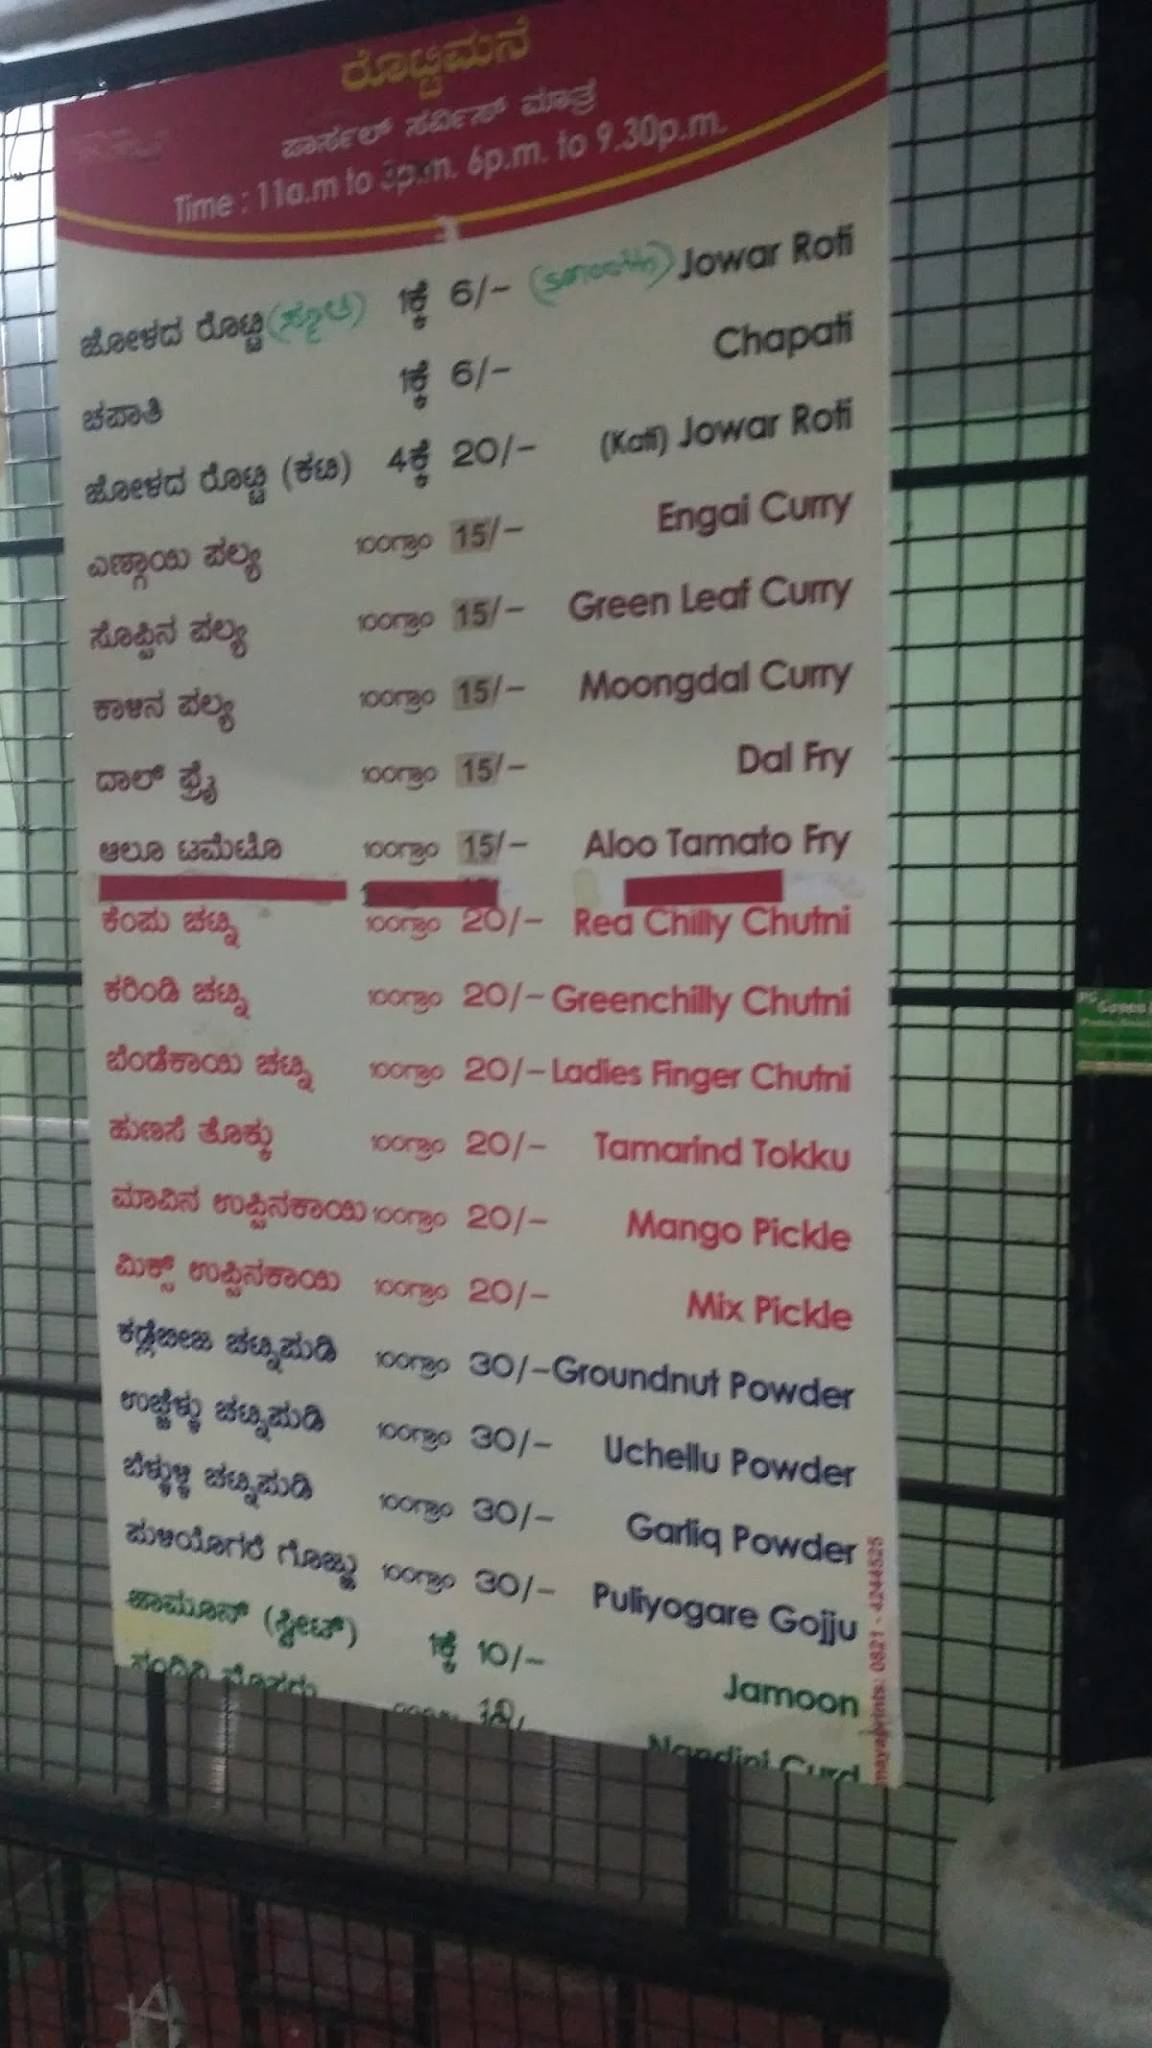 ರೊಟ್ಟಿಮನೆ
ಪಾರ್ಸಲ್ ಸರ್ವಿಸ್ ಮಾತ್ರ
Time : 11a.m to 3p.m. 6p.m. to 9.30p.m.
ಜೋಳದ ರೊಟ್ಟಿ (ಸ್ಮೂತ) 1ಕ್ಕೆ 6/- (smooth) Jowar Roti
ಚಪಾತಿ 1ಕ್ಕೆ 6/- Chapati
ಜೋಳದ ರೊಟ್ಟಿ (ಕಟಿ) 4ಕ್ಕೆ 20/- (Kati) Jowar Roti
ಎಣ್ಗಾಯಿ ಪಲ್ಯ 100ಗ್ರಾಂ 15/- Engai Curry
ಸೊಪ್ಪಿನ ಪಲ್ಯ 100ಗ್ರಾಂ 15/- Green Leaf Curry
ಕಾಳಿನ ಪಲ್ಯ 100ಗ್ರಾಂ 15/- Moongdal Curry
ದಾಲ್ ಫ್ರೈ 100ಗ್ರಾಂ 15/- Dal Fry
ಆಲೂ ಟಮೆಟೊ 100ಗ್ರಾಂ 15/- Aloo Tamato Fry
ಕೆಂಪು ಚಟ್ನಿ 100ಗ್ರಾಂ 20/- Red Chilly Chutni
ಕರಿಂಡಿ ಚಟ್ನಿ 100ಗ್ರಾಂ 20/- Greenchilly Chutni
ಬೆಂಡೆಕಾಯಿ ಚಟ್ನಿ 100ಗ್ರಾಂ 20/- Ladies Finger Chutni
ಹುಣಸೆ ತೊಕ್ಕು 100ಗ್ರಾಂ 20/- Tamarind Tokku
ಮಾವಿನ ಉಪ್ಪಿನಕಾಯಿ 100ಗ್ರಾಂ 20/- Mango Pickle
ಮಿಕ್ಸ್ ಉಪ್ಪಿನಕಾಯಿ 100ಗ್ರಾಂ 20/- Mix Pickle
ಕಡ್ಲೆಬೀಜ ಚಟ್ನಿಪುಡಿ 100ಗ್ರಾಂ 30/- Groundnut Powder
ಉಚ್ಚೆಳ್ಳು ಚಟ್ನಿಪುಡಿ 100ಗ್ರಾಂ 30/- Uchellu Powder
ಬೆಳ್ಳುಳ್ಳಿ ಚಟ್ನಿಪುಡಿ 100ಗ್ರಾಂ 30/- Garliq Powder
ಪುಳಿಯೊಗರೆ ಗೊಜ್ಜು 100ಗ್ರಾಂ 30/- Puliyogare Gojju
ಜಾಮೂನ್ (ಸ್ವೀಟ್) 1ಕ್ಕೆ 10/- Jamoon
ನಂದಿನಿ ಮೊಸರು Nandini Curd
mayaprints: 0821 - 4244525